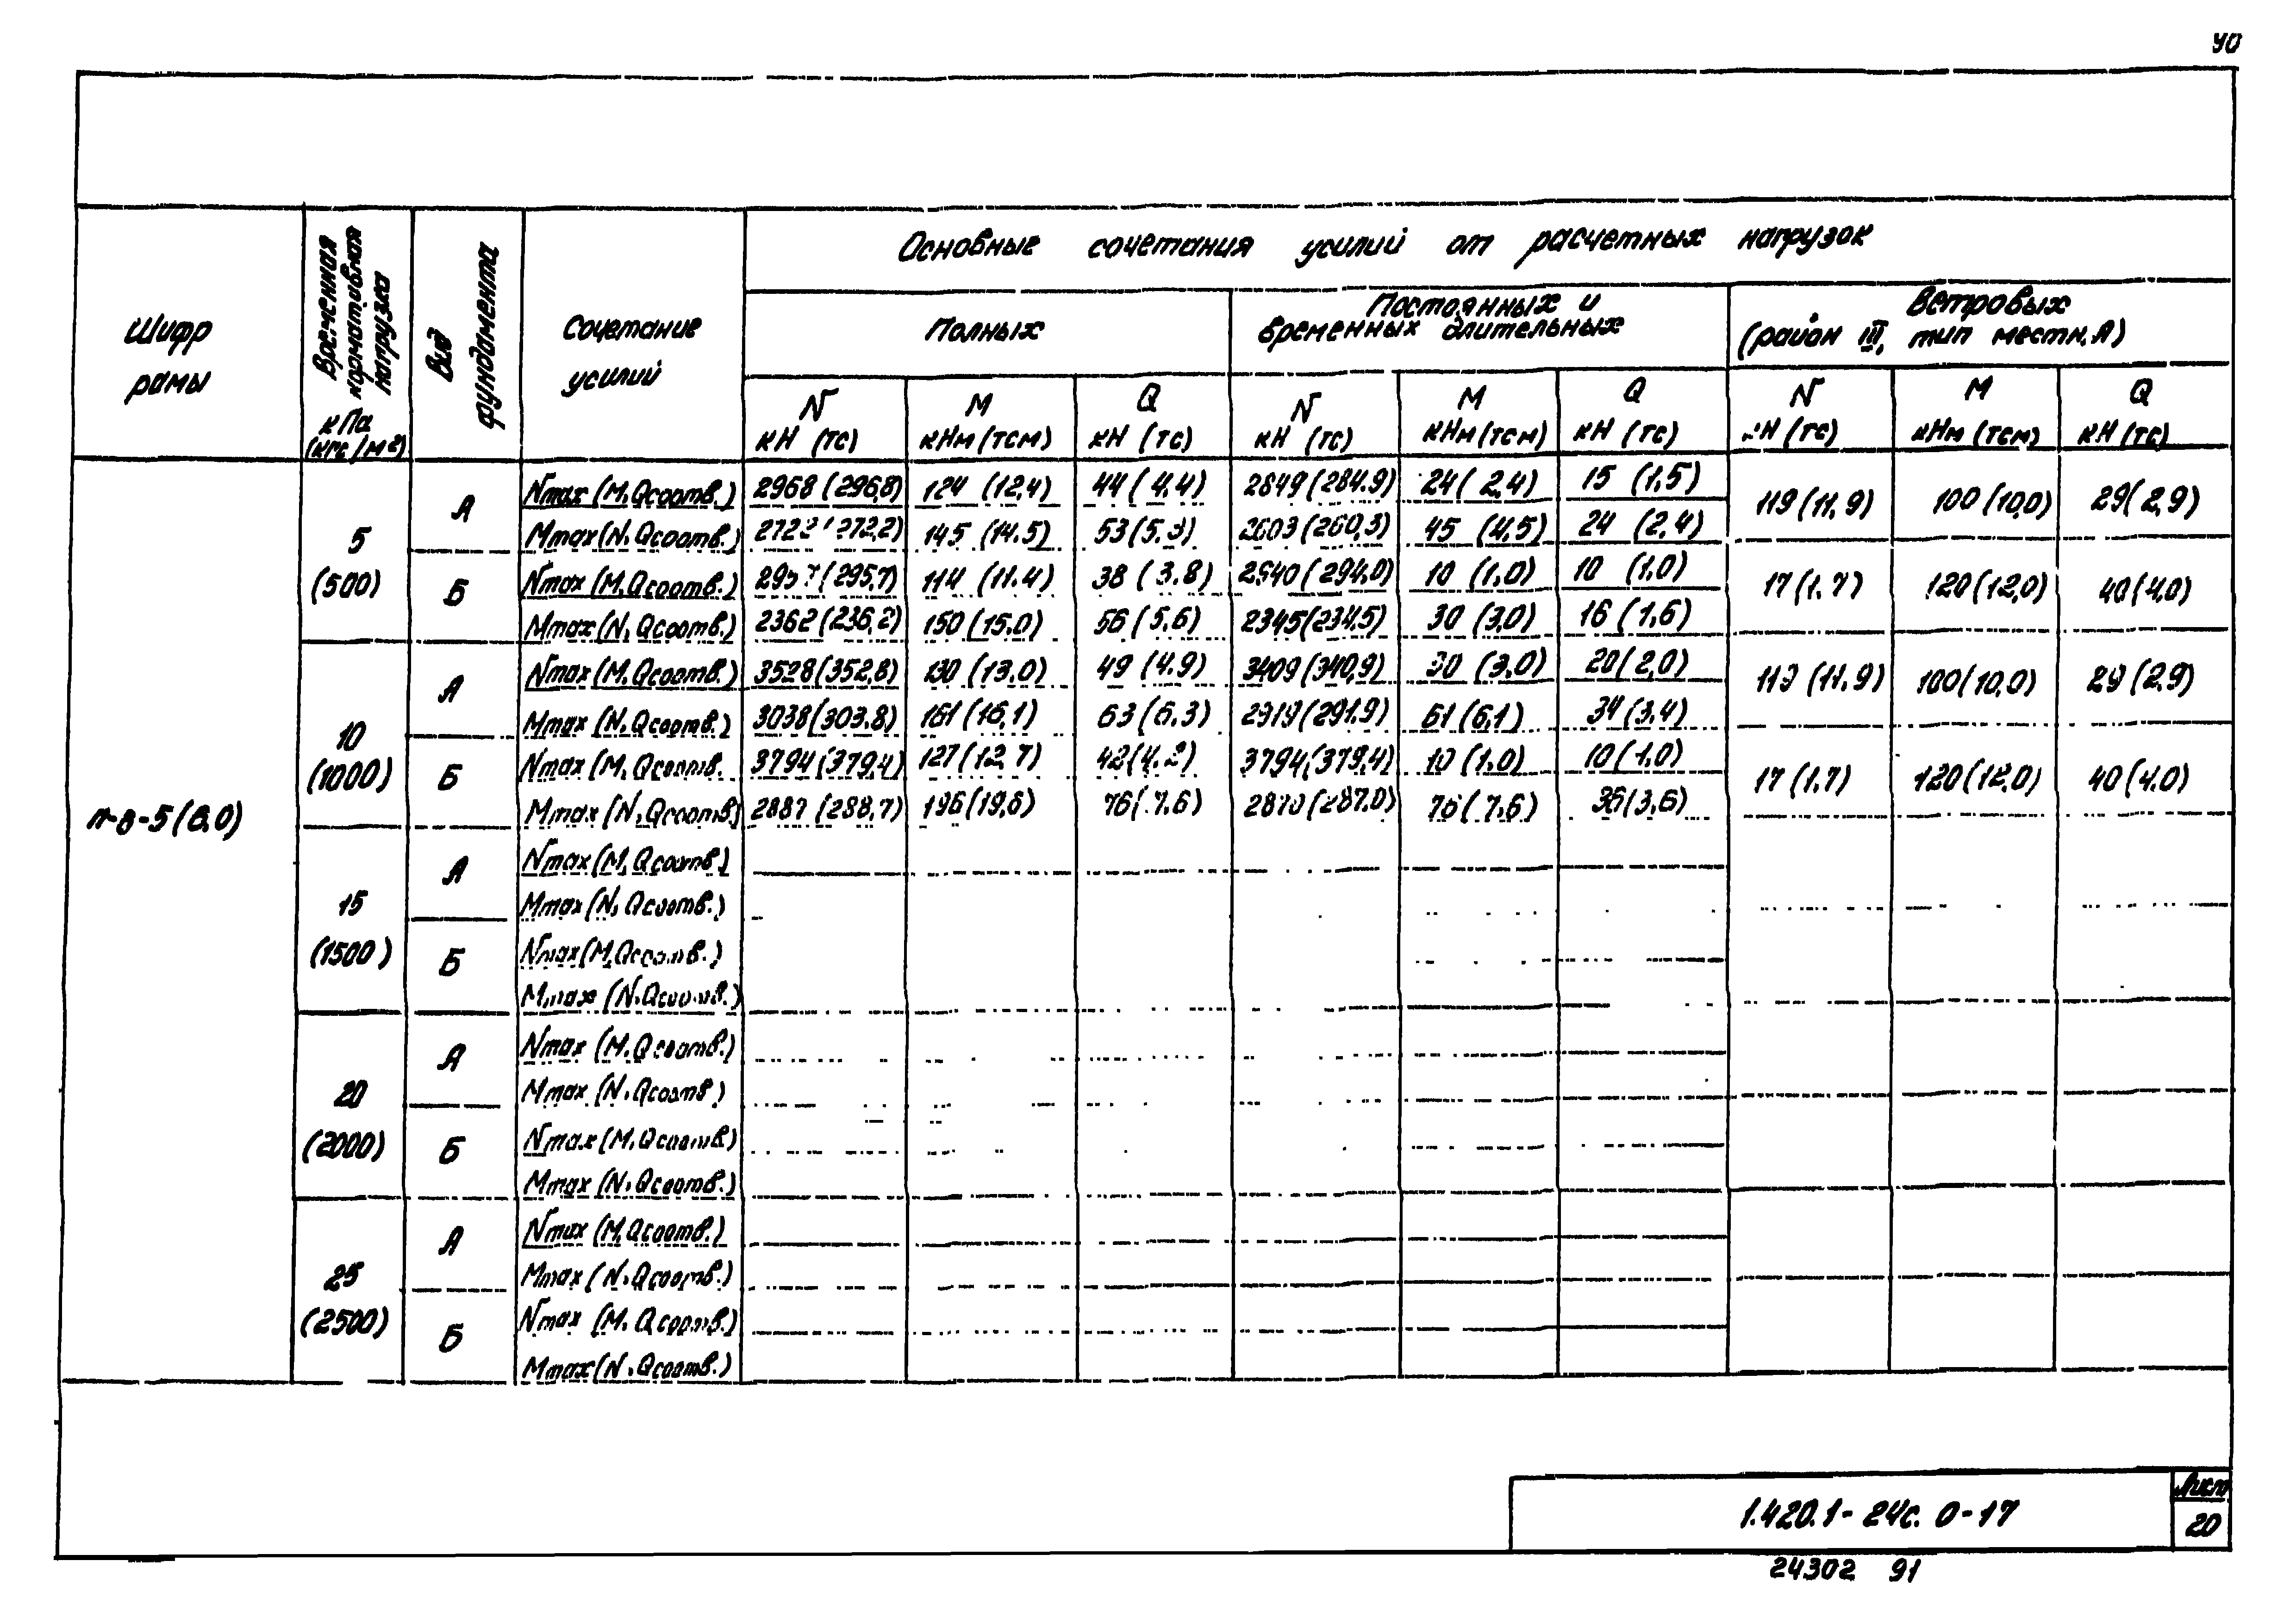 40
Основные сочетания усилий от расчетных нагрузок
Шифр рамы
Временная нормативная нагрузка кПа (кгс/м²)
Вид фундамента
Сочетание усилий
Полных
Постоянных и временных длительных
Ветровых (район III, тип местн. А)
N кН (тс) M кНм (тсм) Q кН (тс) N кН (тс) M кНм (тсм) Q кН (тс) N кН (тс) M кНм (тсм) Q кН (тс)
п-8-5(6,0)
5 (500)
А
Nmax (M, Qсоотв.) 2968 (296,8) 124 (12,4) 44 (4,4) 2849 (284,9) 24 (2,4) 15 (1,5) 119 (11,9) 100 (10,0) 29 (2,9)
Mmax (N, Qсоотв.) 2722 (272,2) 145 (14,5) 53 (5,3) 2603 (260,3) 45 (4,5) 24 (2,4)
Б
Nmax (M, Qсоотв.) 2957 (295,7) 114 (11,4) 38 (3,8) 2940 (294,0) 10 (1,0) 10 (1,0) 17 (1,7) 120 (12,0) 40 (4,0)
Mmax (N, Qсоотв.) 2362 (236,2) 150 (15,0) 56 (5,6) 2345 (234,5) 30 (3,0) 16 (1,6)
10 (1000)
А
Nmax (M, Qсоотв.) 3528 (352,8) 130 (13,0) 49 (4,9) 3409 (340,9) 30 (3,0) 20 (2,0) 119 (11,9) 100 (10,0) 29 (2,9)
Mmax (N, Qсоотв.) 3038 (303,8) 161 (16,1) 63 (6,3) 2919 (291,9) 61 (6,1) 34 (3,4)
Б
Nmax (M, Qсоотв. 3794 (379,4) 127 (12,7) 42 (4,2) 3794 (379,4) 10 (1,0) 10 (1,0) 17 (1,7) 120 (12,0) 40 (4,0)
Mmax (N, Qсоотв) 2887 (288,7) 196 (19,6) 76 (7,6) 2870 (287,0) 76 (7,6) 36 (3,6)
15 (1500)
А
Nmax (M, Qсоотв)
Mmax (N, Qсоотв.)
Б
Nmax (M, Qсоотв.)
Mmax (N, Qсоотв.)
20 (2000)
А
Nmax (M, Qсоотв.)
Mmax (N, Qсоотв)
Б
Nmax (M, Qсоотв)
Mmax (N, Qсоотв.)
25 (2500)
А
Nmax (M, Qсоотв.)
Mmax (N, Qсоотв.)
Б
Nmax (M, Qсоотв.)
Mmax (N, Qсоотв.)
1.420.1-24с. 0-17
Лист
20
24302 91